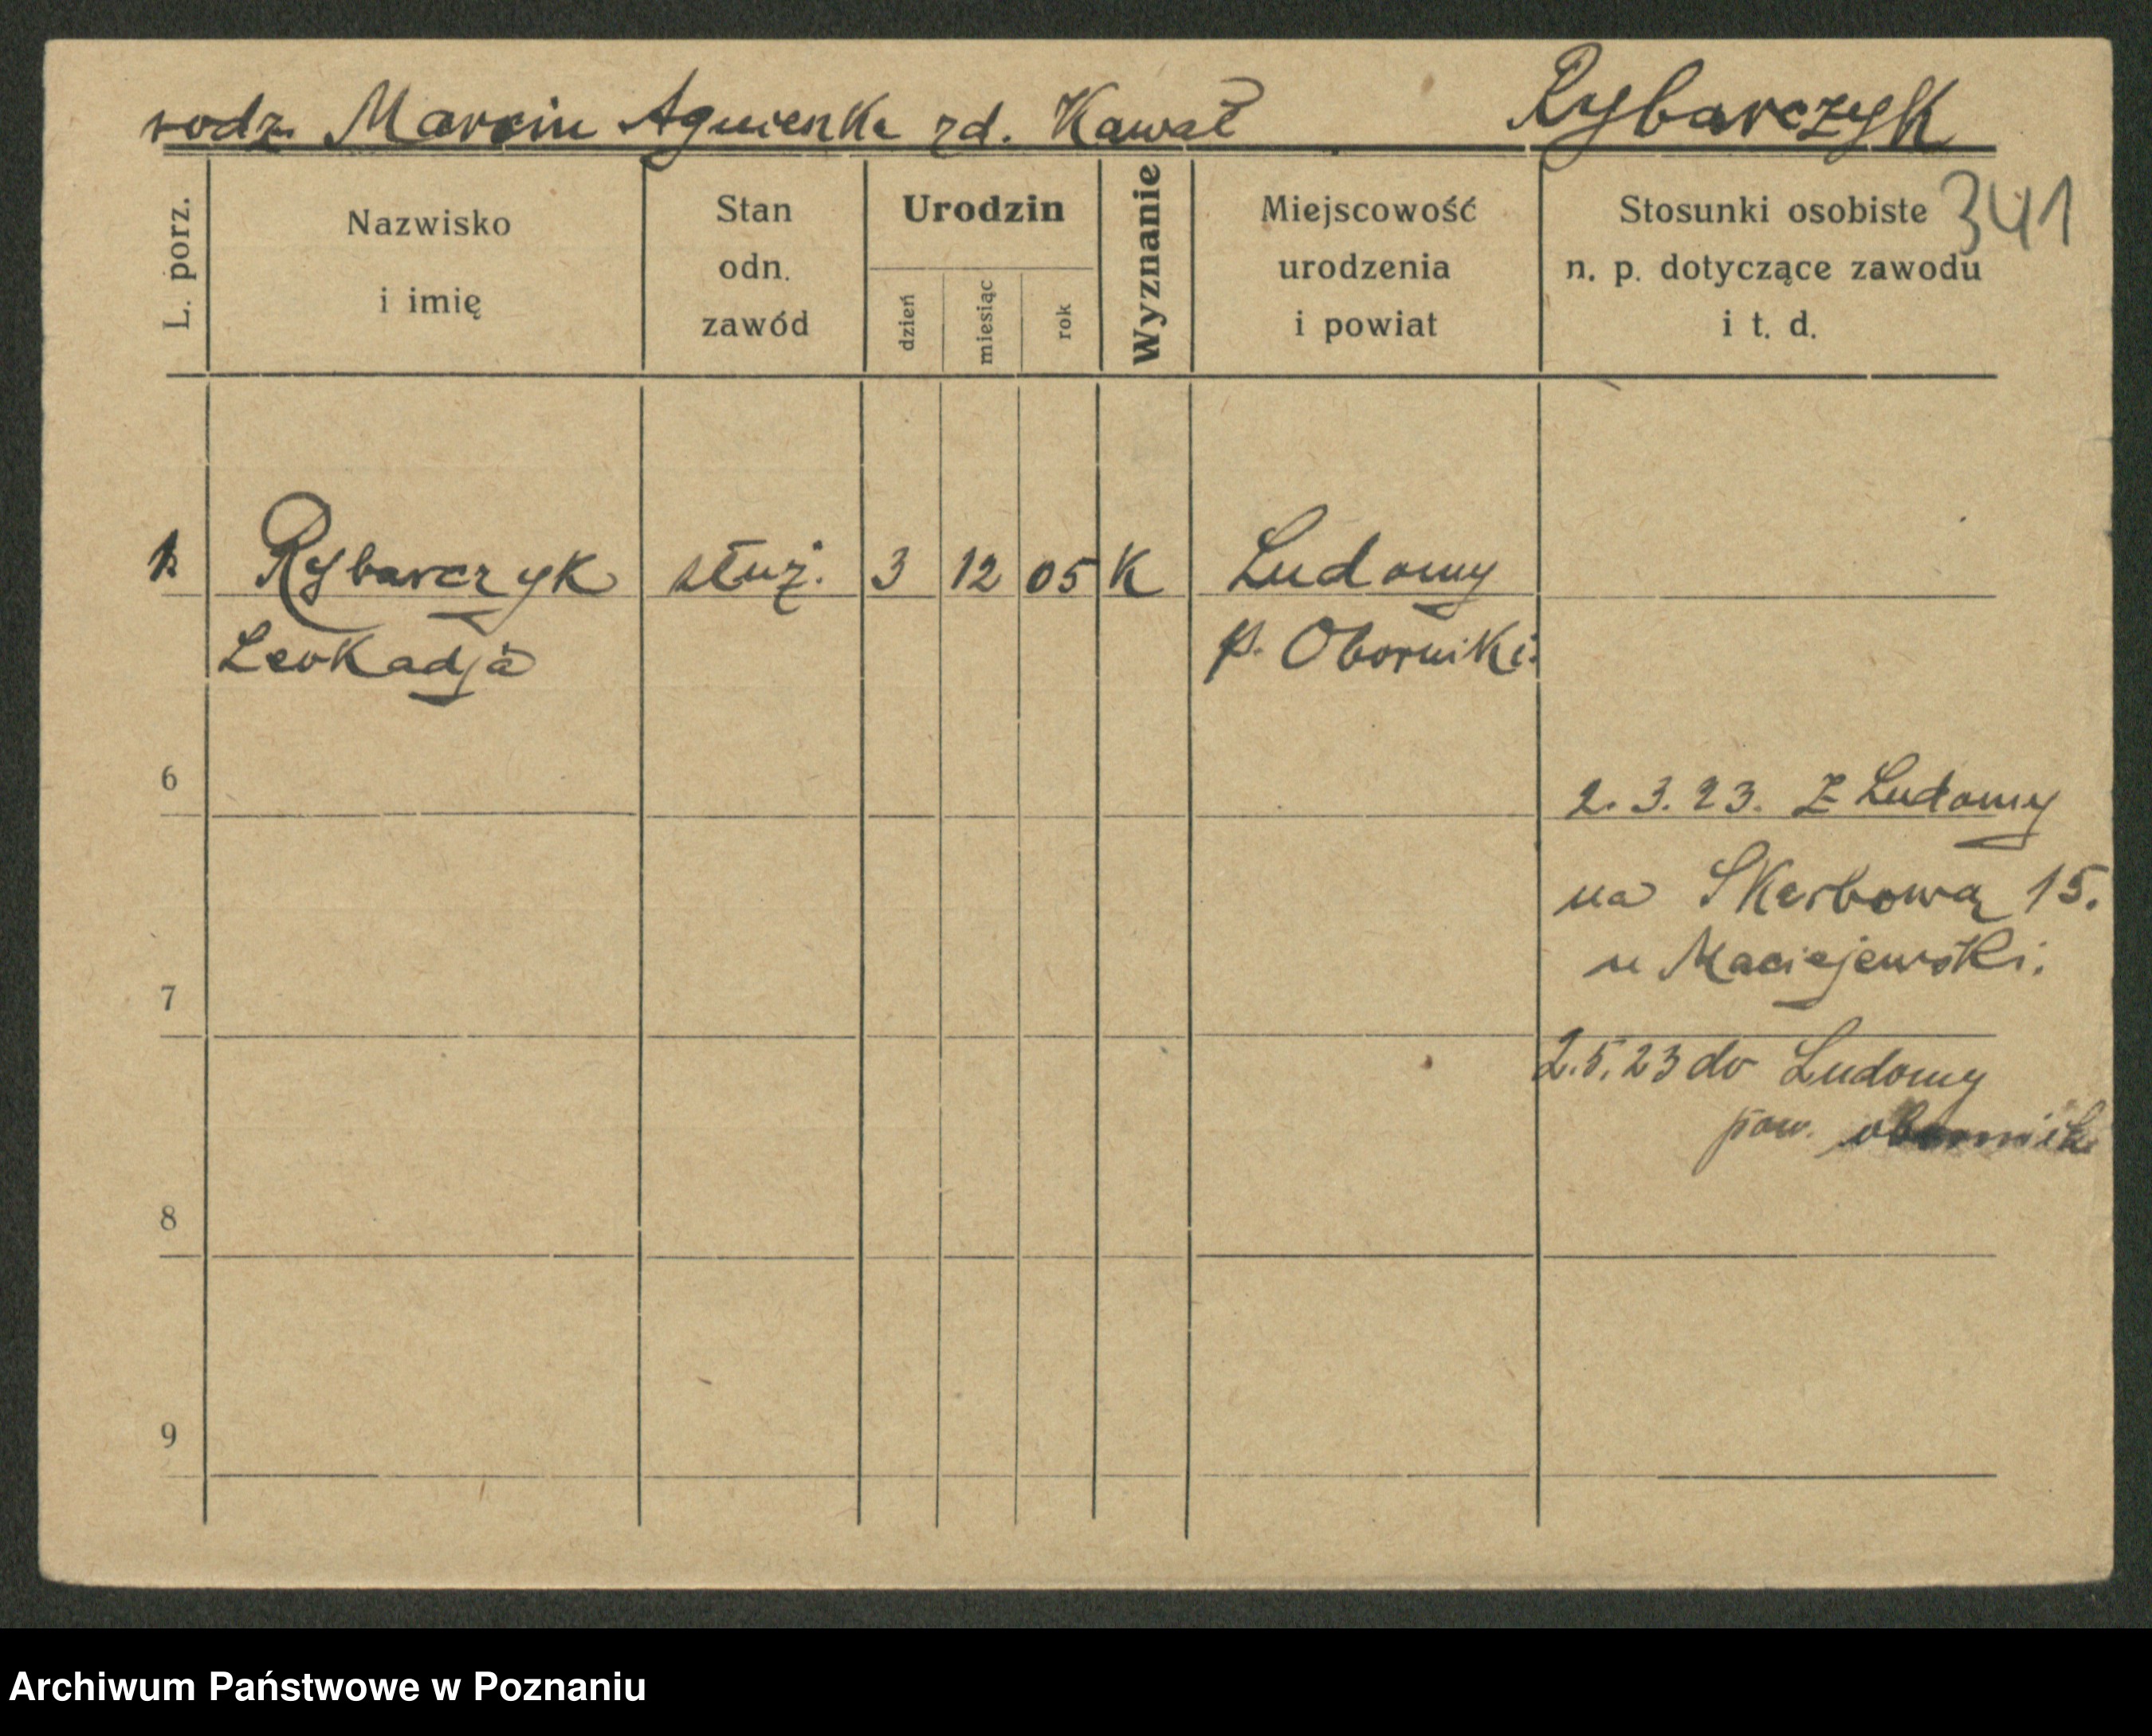 rodz. Marcin Agnienka zd. Kawał Rybarczyk
341
L. porz.
Nazwisko
i imię
Stan
odn.
zawód
Urodzin
dzień
miesiąc
rok
Wyznanie
Miejscowość
urodzenia
i powiat
Stosunki osobiste
n. p. dotyczące zawodu
i t. d.
1. Rybarczyk służ. 3 12 05 K Ludomy
Leokadja p. Oborniki.
6
2.3.23. z Ludomy
na Skarbową 15.
u Maciejewski.
7
2.5.23 do Ludomy
pow. obornik
8
9
Archiwum Państwowe w Poznaniu